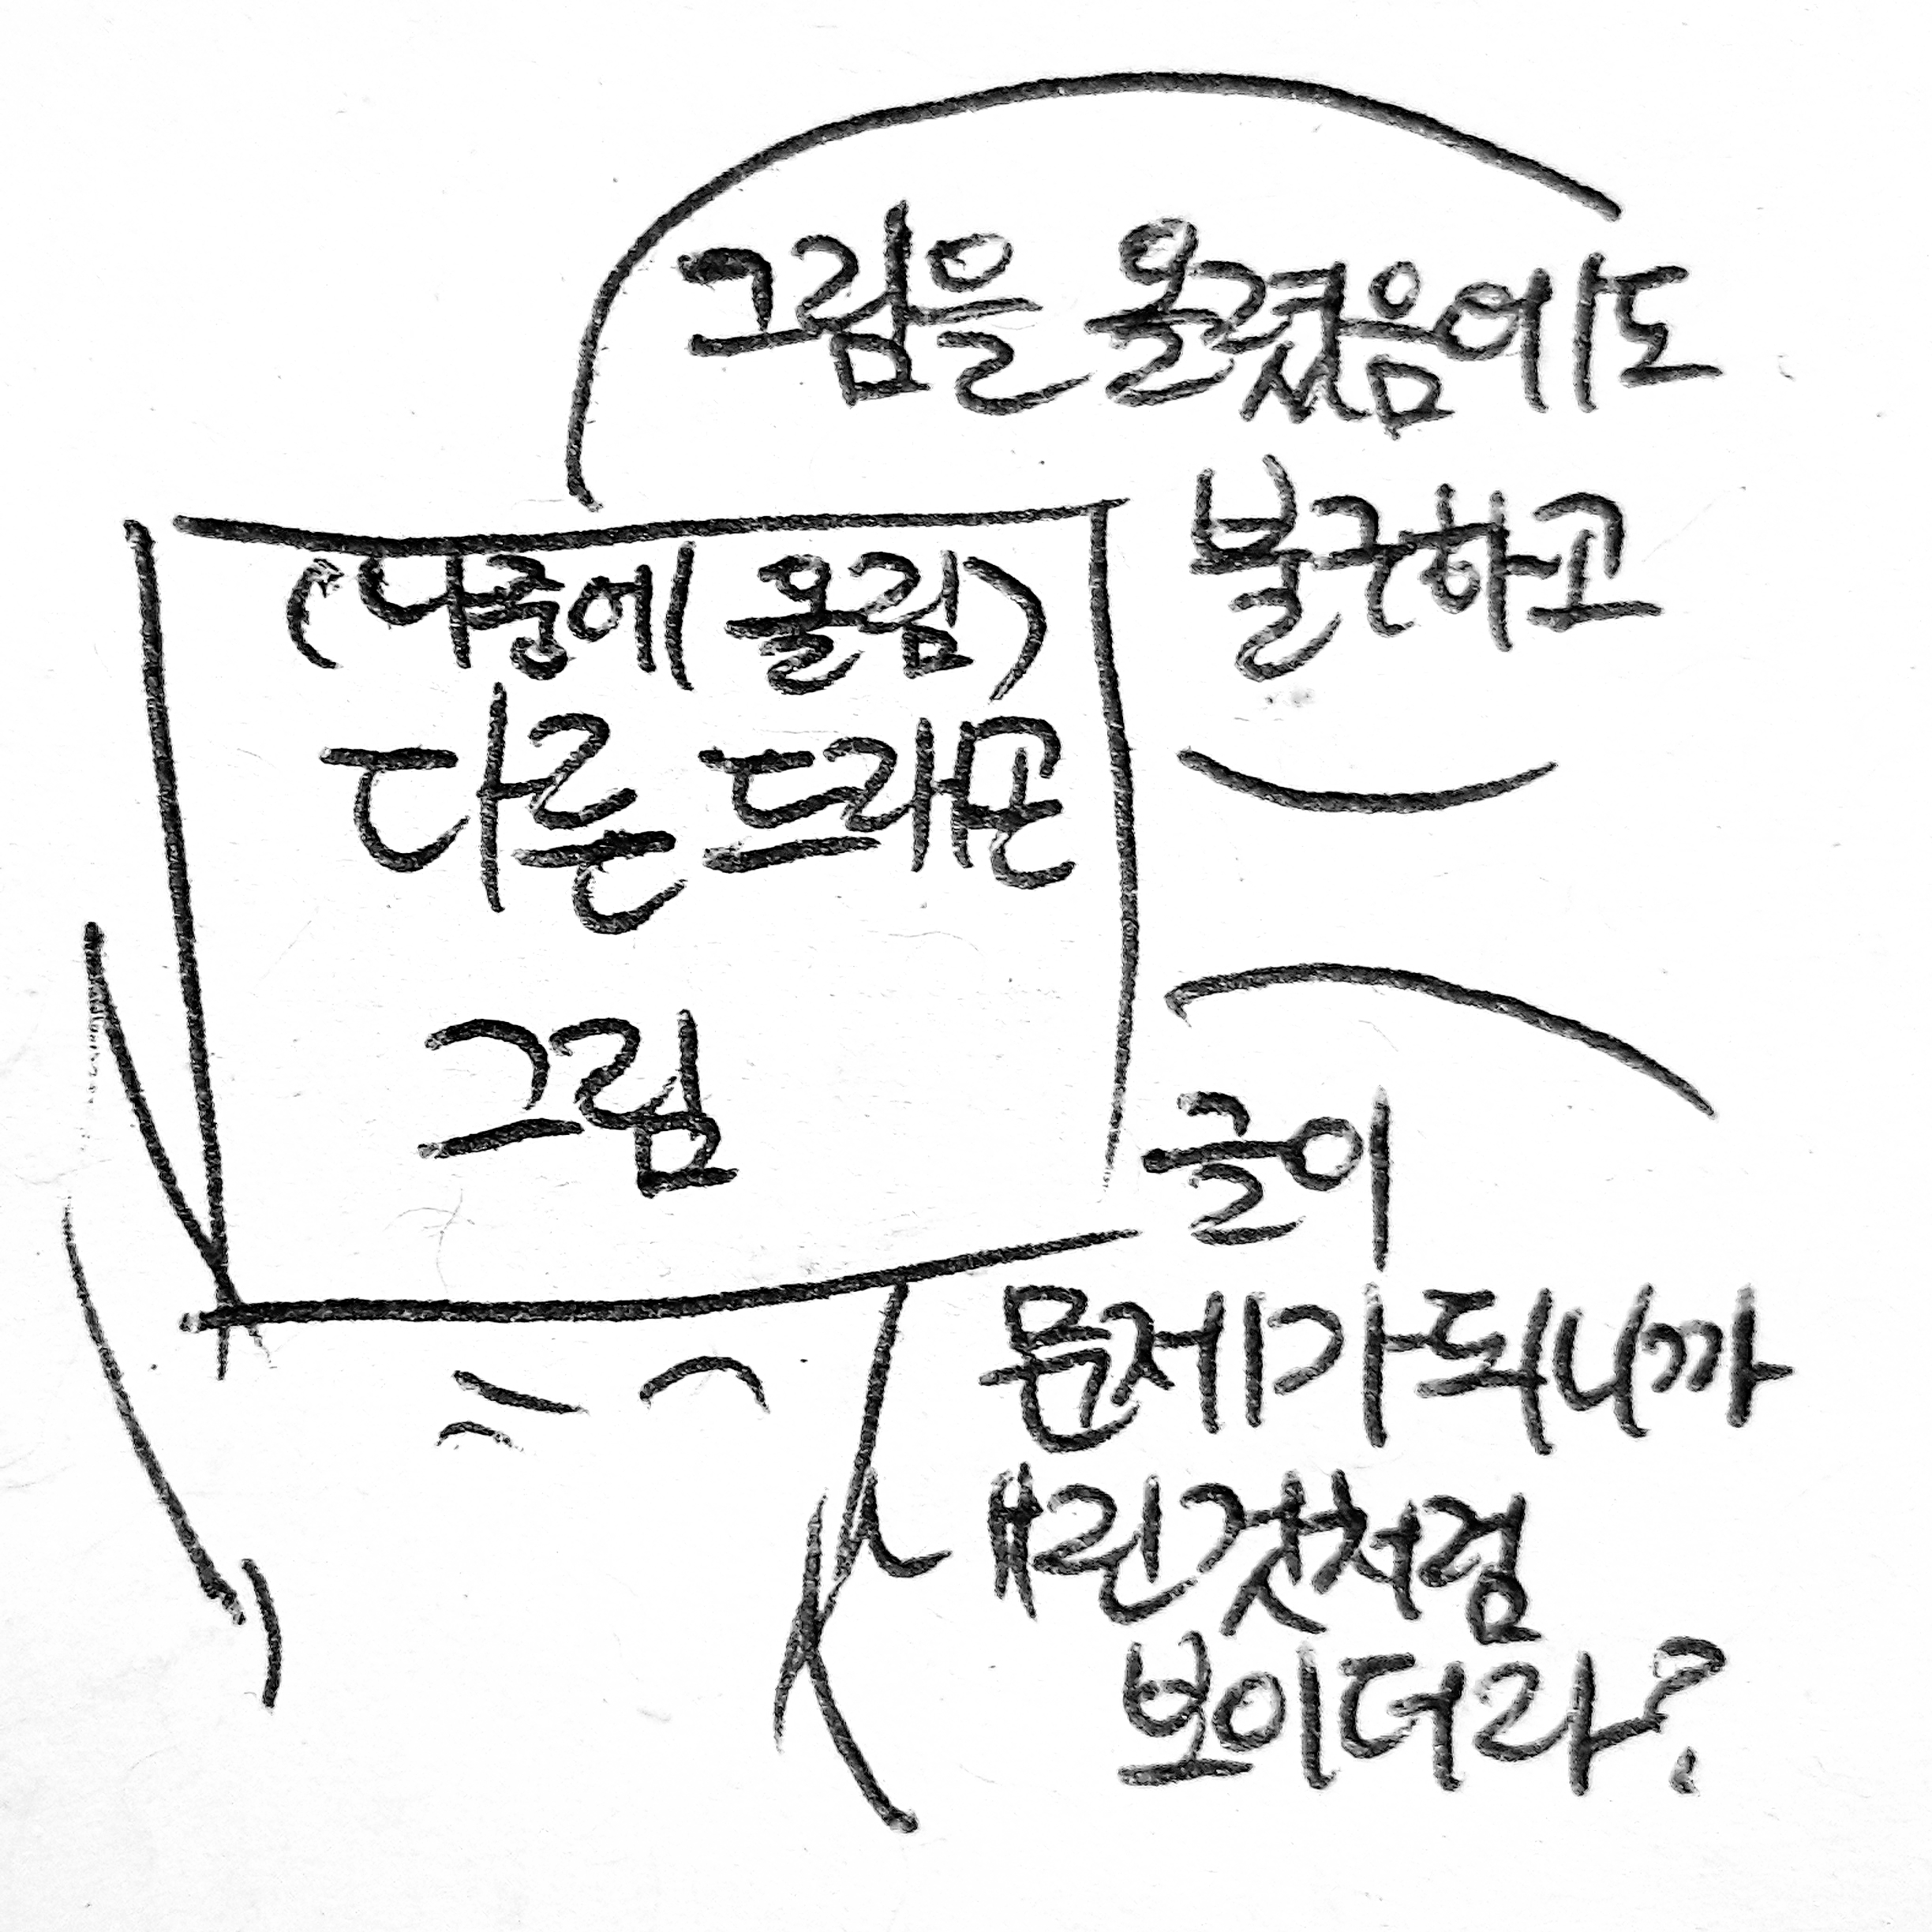 그림을 올렸음에도
불구하고
(나중에 올림)
다른 드래곤
그림
글이
문제가 되니까
내린것처럼
보이더라?